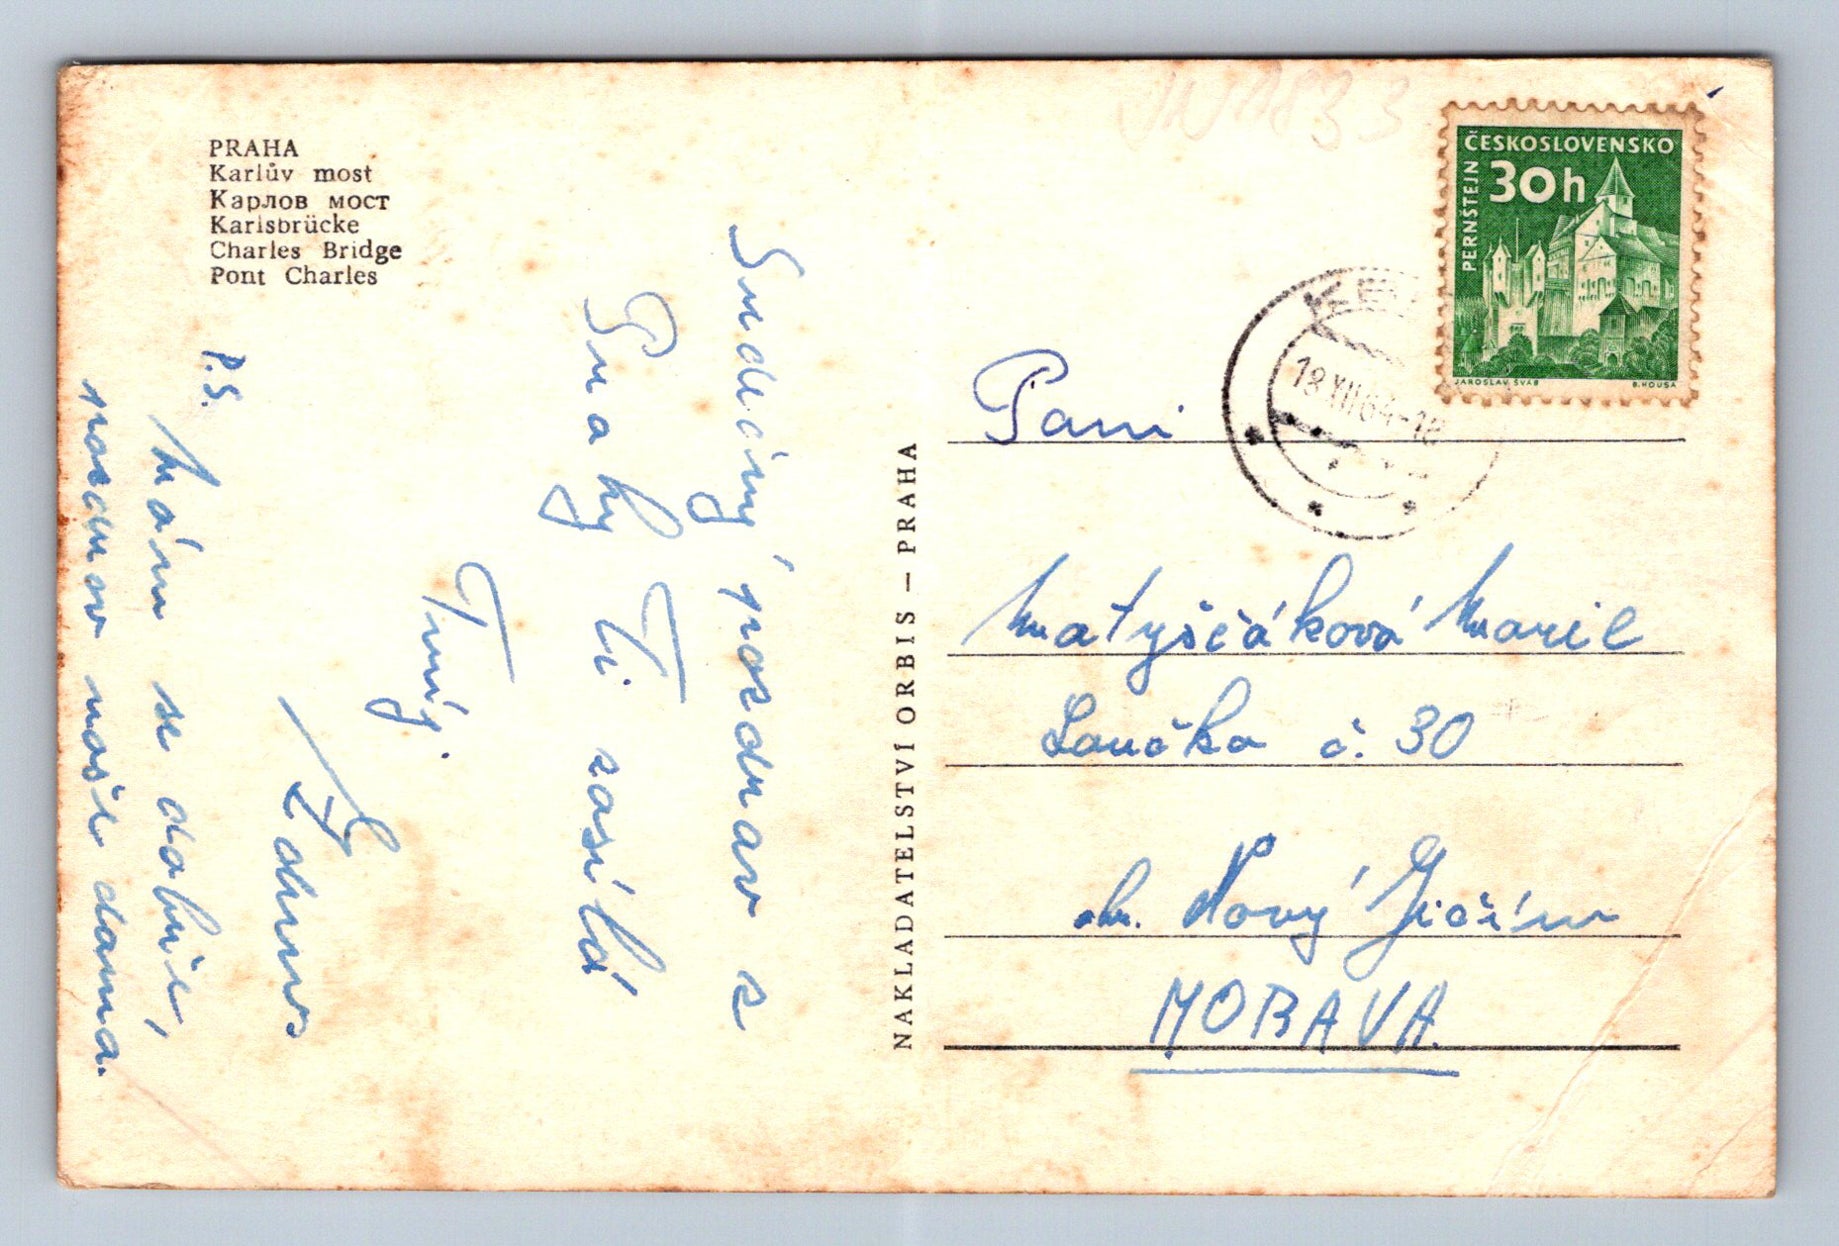 PRAHA
Karlův most
Карлов мост
Karlsbrücke
Charles Bridge
Pont Charles
Srdečný pozdrav z
Prahy Ti zasílá
Tvůj.
P.S.
Mám se dobře,
pozdrav naše doma.
NAKLADATELSTVÍ ORBIS — PRAHA
ČESKOSLOVENSKO
30h
PERNŠTEJN
JAROSLAV ŠVÁB
B. HOUSA
18.XII.64-18
Paní
Matyščáková Marie
Loučka č. 30
okr. Nový Jičín
MORAVA.